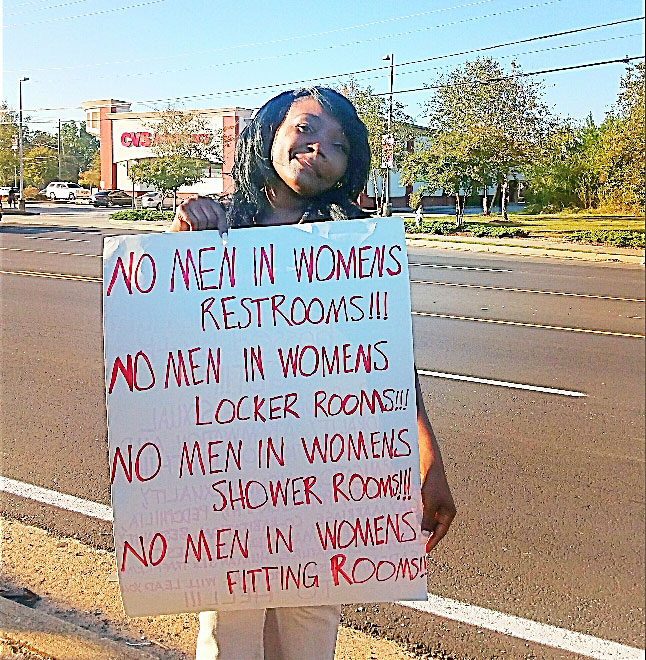 CVS
NO MEN IN WOMENS
RESTROOMS!!!
NO MEN IN WOMENS
LOCKER ROOMS!!!
NO MEN IN WOMENS
SHOWER ROOMS!!!
NO MEN IN WOMENS
FITTING ROOMS!!